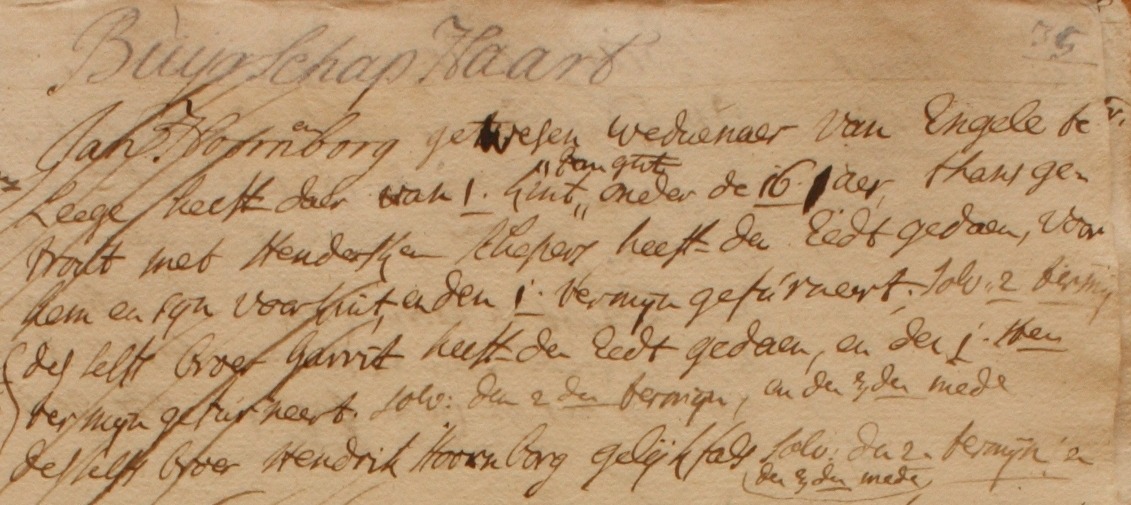 Buyrschap Haart 35
Jan Hoornenborg getwesen weduenaer van Engele te
Leege heeft daer van 1. kint, van gut onder de 16 Jaer, thans ge-
trout met Hendersken heeft den Eedt gedaen, voor
hem en syn voorkint, en den 1. termyn gefurneert. solv. 2 termyn
desselfs broer Garrit heeft den Eedt gedaen, en den 1. sten
termyn gefurneert. solv: den 2 den termyn, en den 3den mede
desselfs broer Hendrik Hoornborg gelijkfals solv: den 2. termyn en
den 3den mede